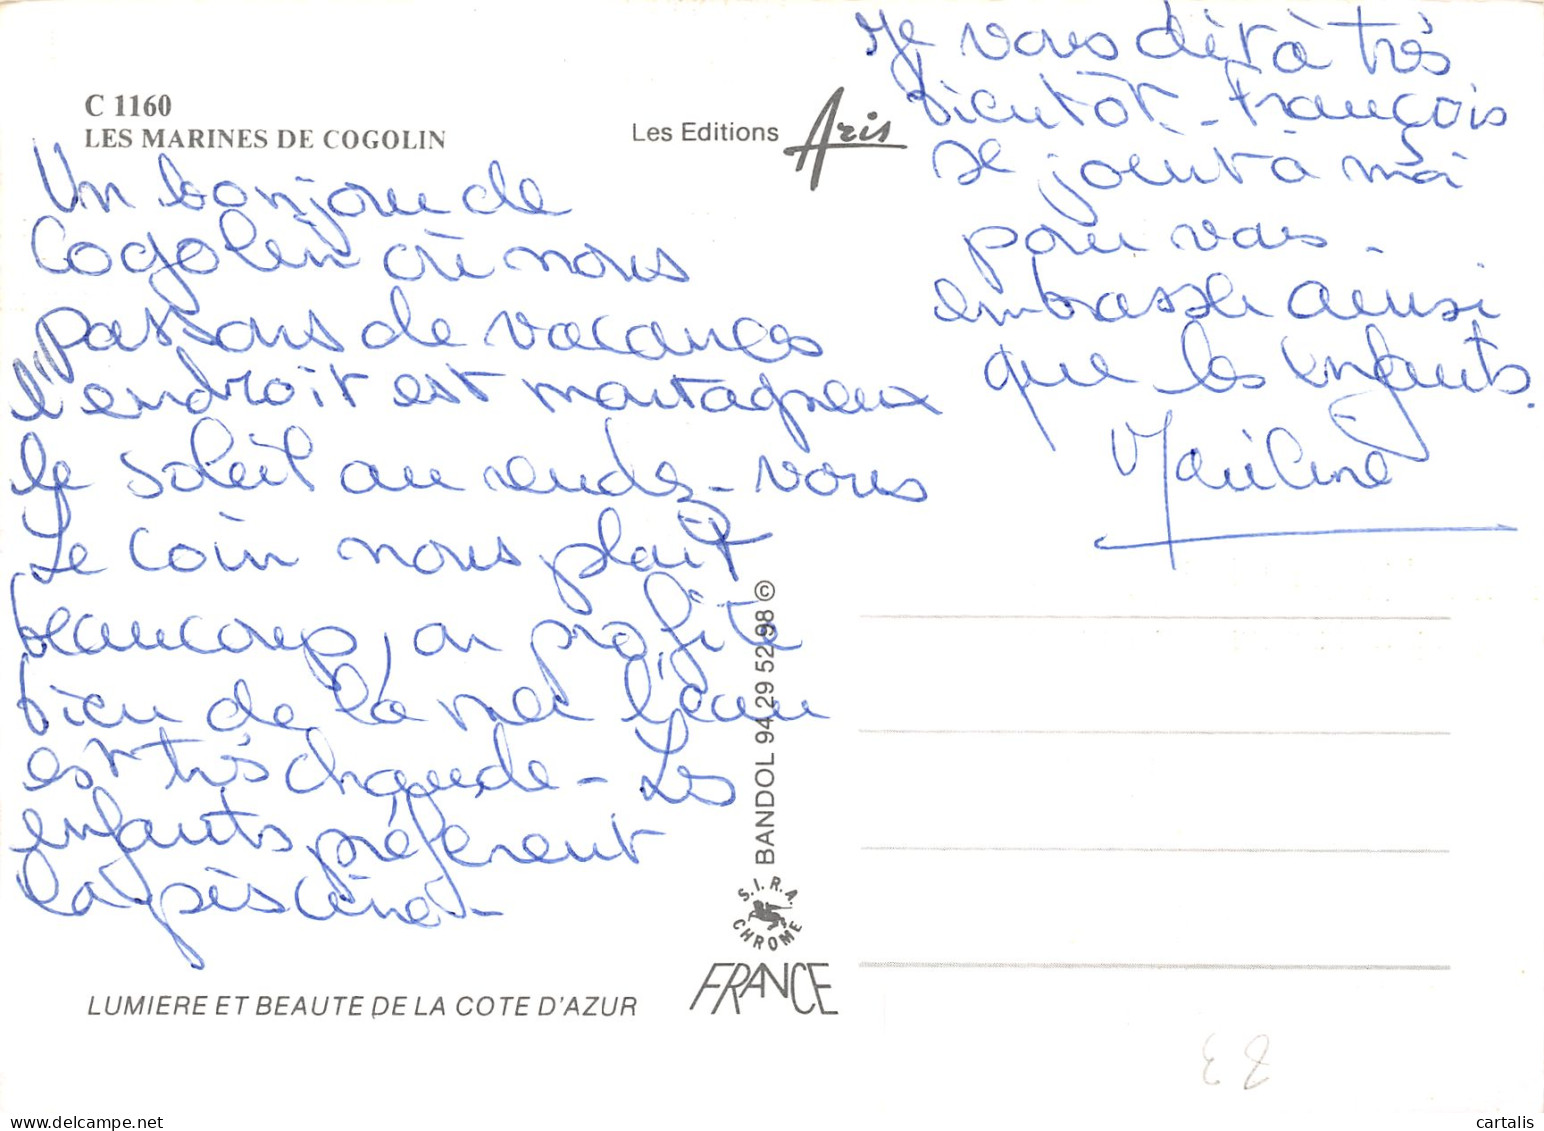 C 1160
LES MARINES DE COGOLIN
Les Editions Aris
Un bonjour de
Cogolin où nous
passons de vacances
l'endroit est montagneux
le soleil au rendez-vous
Le coin nous plait
beaucoup, on profite
bien de la mer l'eau
est très chaude - Les
enfants préfèrent
la piscine -
Je vous dit à très
bientôt - François
se joint à moi
pour vous
embrasser ainsi
que les enfants.
BANDOL 94 29 52 98 ©
S.I.R.A.
CHROME
FRANCE
LUMIERE ET BEAUTE DE LA COTE D'AZUR
E8
cartalis
delcampe.net